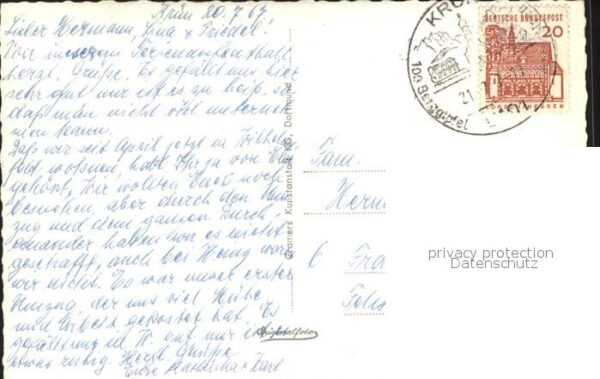 Krün 20.7.67
Lieber Hermann, Lina & Friedel!
Von unserem Ferienaufenthalt
herzl. Grüße. Es gefällt uns hier
sehr gut nur ist es zu heiß, so
daß man nicht viel unterneh-
men kann.
Daß wir seit April jetzt in
wohnen, habt Ihr ja von
gehört, Wir wollten Euch noch
besuchen, aber durch den Um
zug und dem ganzen Durch
einander haben wir es nicht
geschafft, auch bei Heinz waren
wir nicht. Es war unser erster
Umzug der uns viel Mühe
und Arbeit gekostet hat. Es
gefällt uns in W. gut nur ist es
etwas ruhig. Herzl. Grüße
Eure + Karl
Cramers Kunstanstalt KG, Dortmund
Originalfoto
KRÜ
100 Berggipfel
21.
DEUTSCHE BUNDESPOST
20
LORSCH HESSEN
Fam.
Herm
6 Fra
privacy protection
Datenschutz